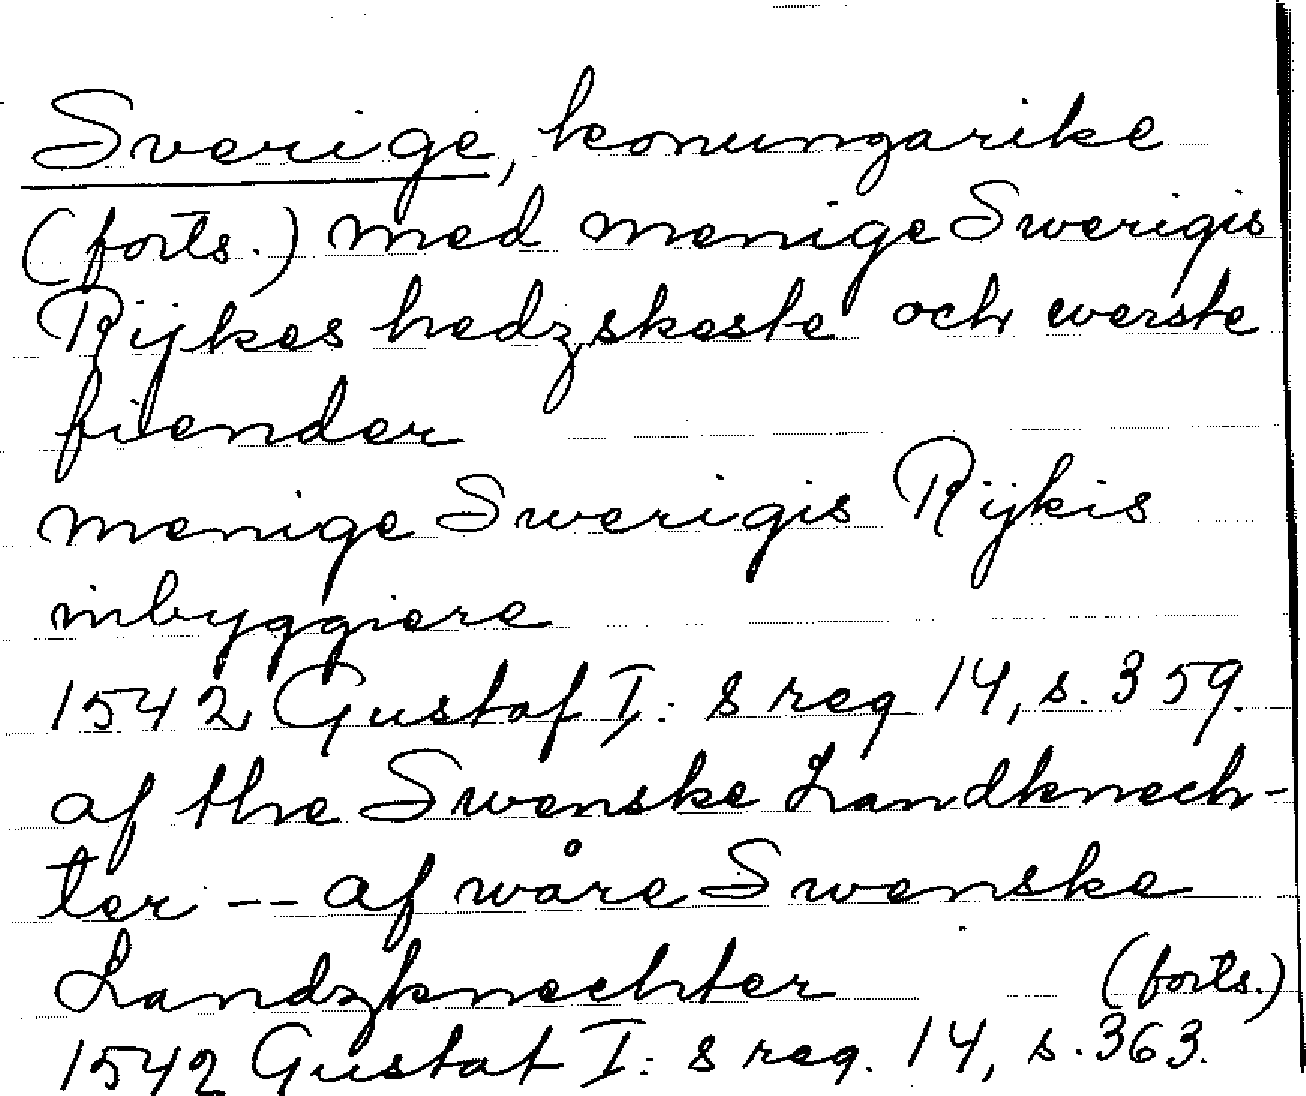 Sverige, konungarike
(forts.) med menige Swerigis
Rijkes hedzskeste och werste
fiender
menige Swerigis Rijkis
inbyggiere
1542 Gustaf I: s reg 14, s. 359.
af the Swenske Landknech-
ter -- af wåre Swenske
Landzknechter (forts.)
1542 Gustaf I: s reg. 14, s. 363.